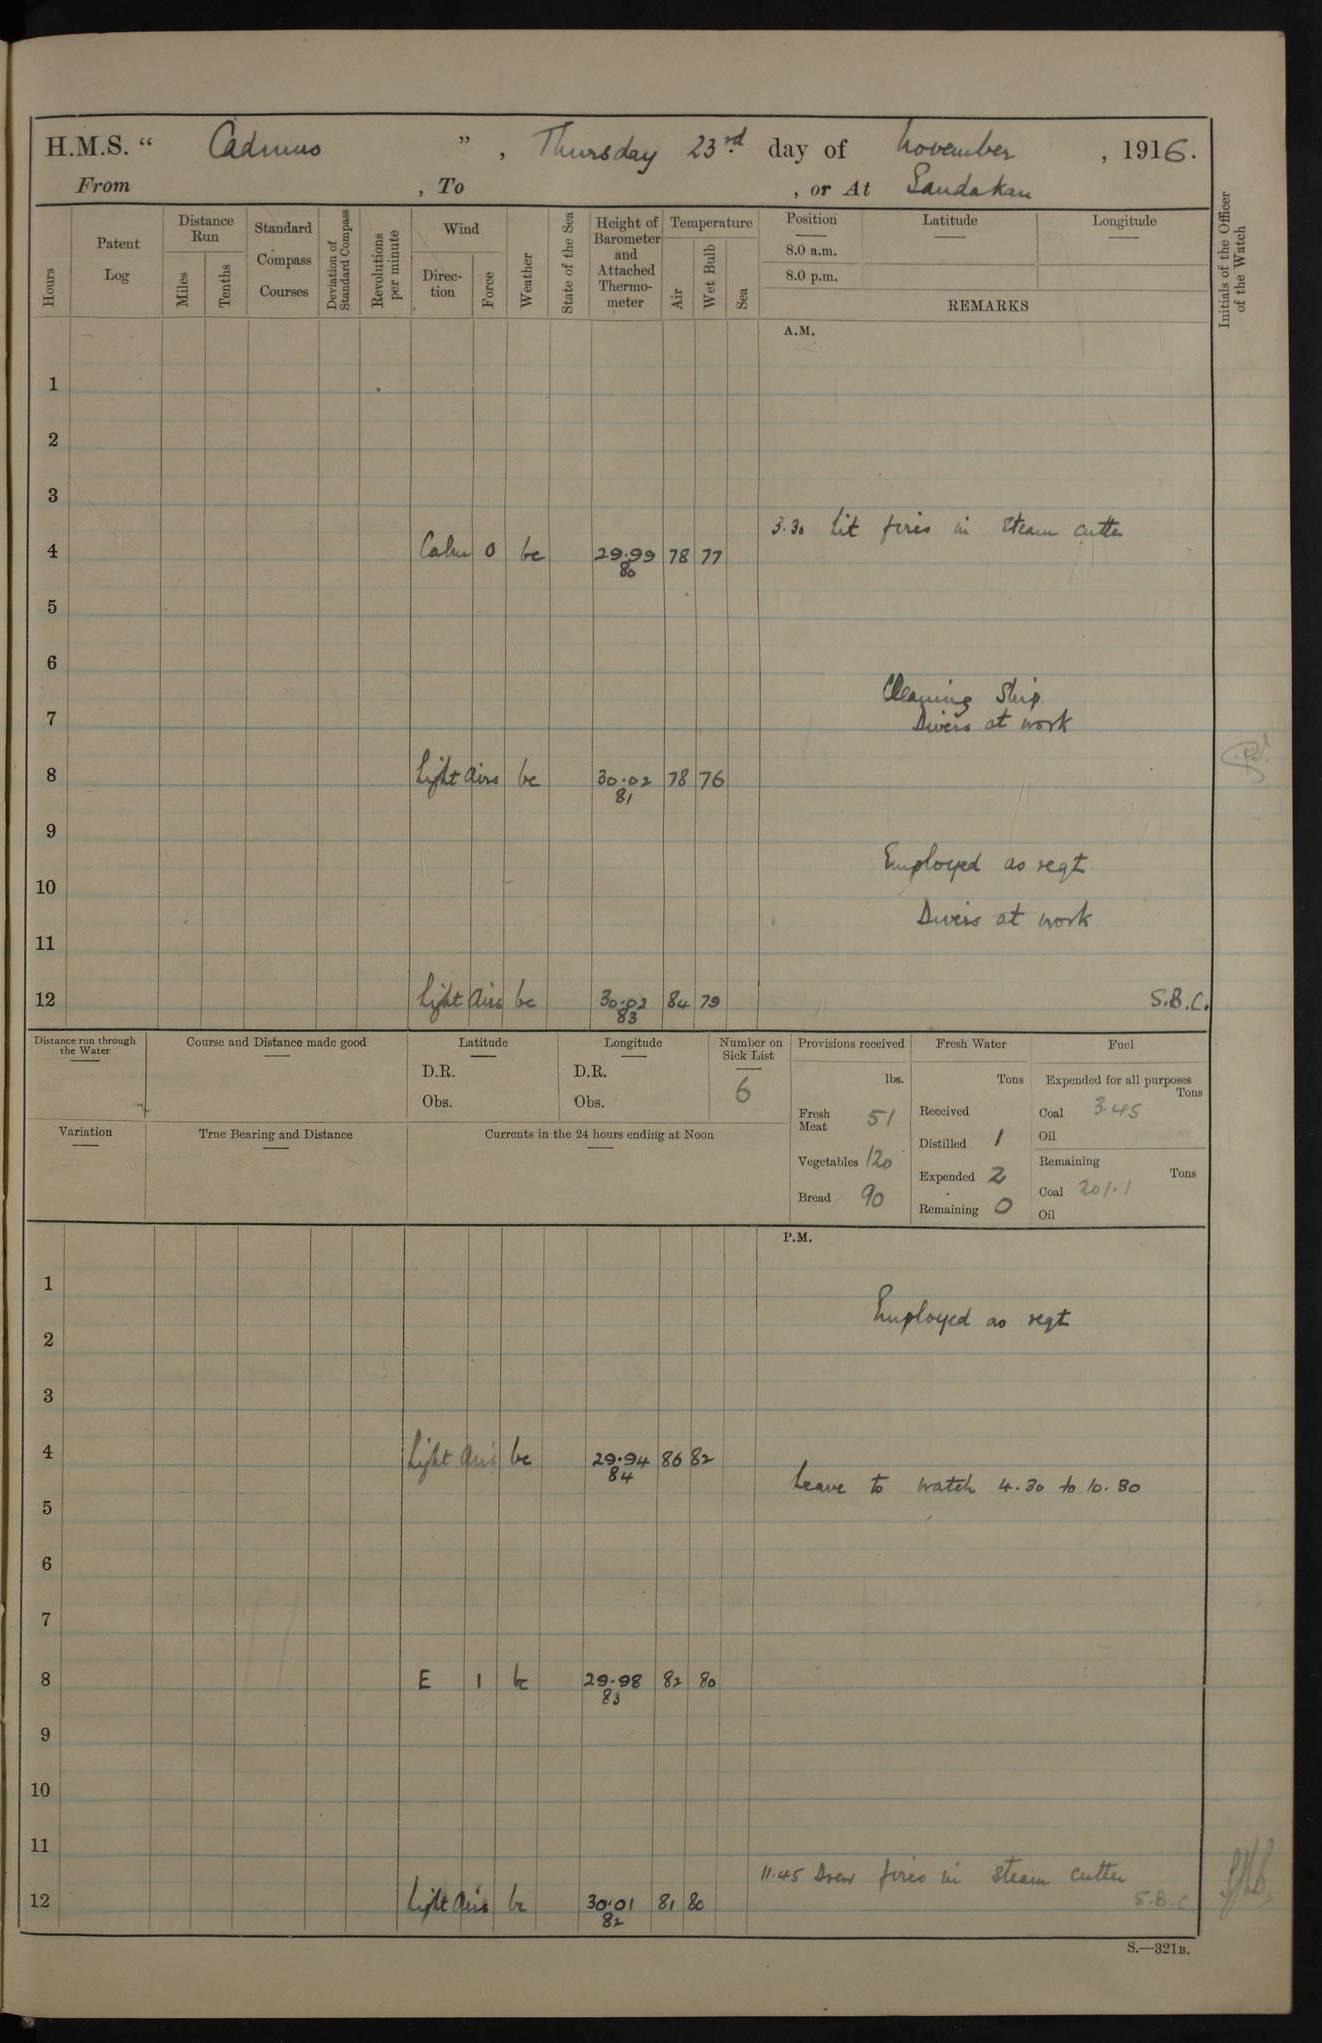 H.M.S. “ Cadmus ” , Thursday 23rd day of November , 1916.
From , To , or At Sandakan
Hours
Patent Log
Distance Run
Miles
Tenths
Standard Compass Courses
Deviation of Standard Compass
Revolutions per minute
Wind
Direction
Force
Weather
State of the Sea
Height of Barometer and Attached Thermometer
Temperature
Air
Wet Bulb
Sea
Position
8.0 a.m.
8.0 p.m.
Latitude
Longitude
REMARKS
Initials of the Officer of the Watch
A.M.
1
2
3
3.30 Lit fires in steam cutter
4 Calm 0 bc 29.99 78 77
80
5
6
Cleaning Ship
7 Divers at work
8 Light Airs bc 30.02 78 76
81
9
Employed as reqt
10
Divers at work
11
12 Light Airs bc 30.02 84 79 S.B.C.
83
Distance run through the Water
Course and Distance made good
Latitude
D.R.
Obs.
Longitude
D.R.
Obs.
Number on Sick List
6
Variation
True Bearing and Distance
Currents in the 24 hours ending at Noon
Provisions received
lbs.
Fresh Meat 51
Vegetables 120
Bread 90
Fresh Water
Tons
Received
Distilled 1
Expended 2
Remaining 0
Fuel
Expended for all purposes
Tons
Coal 3.45
Oil
Remaining
Tons
Coal 201.1
Oil
P.M.
1
Employed as reqt
2
3
4 Light Airs bc 29.94 86 82
84
Leave to watch 4.30 to 10.30
5
6
7
8 E 1 bc 29.98 82 80
83
9
10
11
11.45 Drew fires in steam cutter
12 Light Airs bc 30.01 81 80 S.B.C.
82
S.—321B.